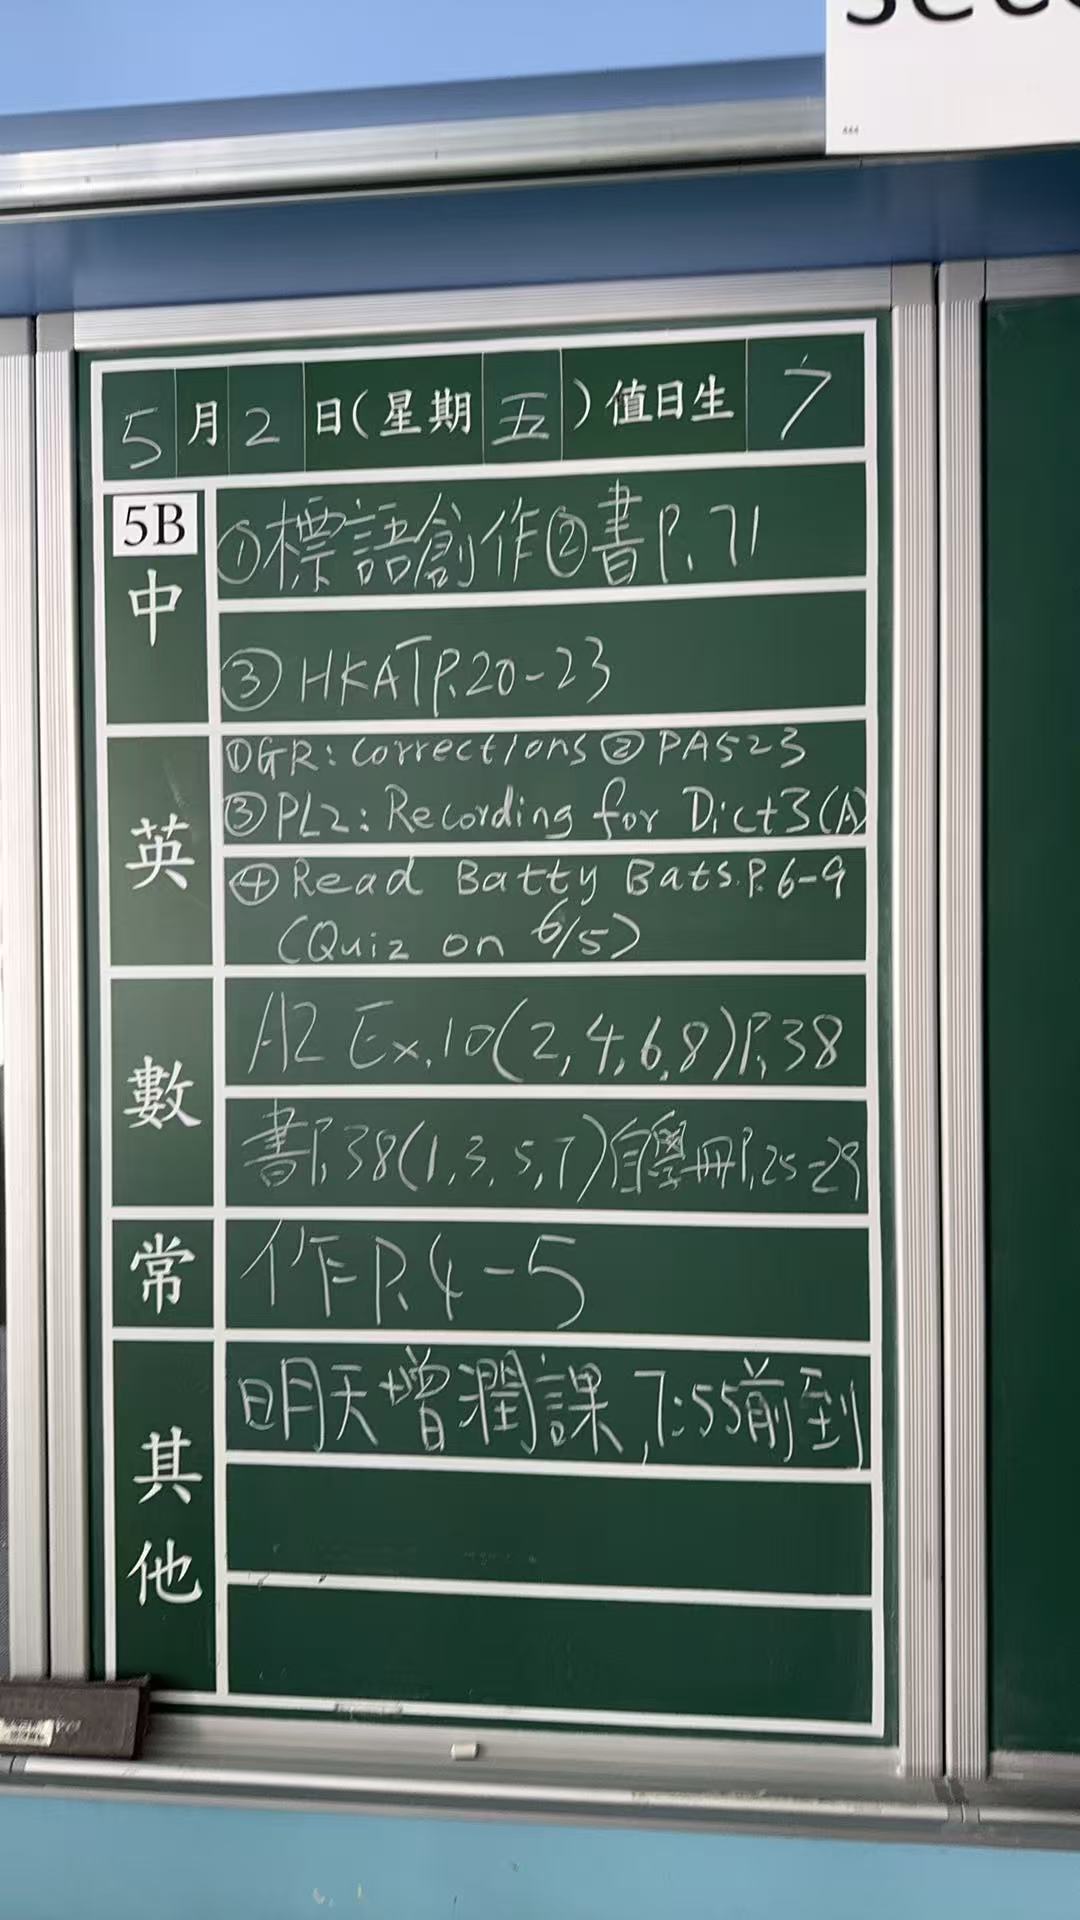 5月2日(星期五)值日生 7
5B
中
①標語創作②書P.71
③HKAT P.20-23
英
①GR: Corrections ② PA523
③PL2: Recording for Dict3(A)
④Read Batty Bats P.6-9
(Quiz on 6/5)
數
A2 Ex.10(2,4,6,8)P.38
書P.38(1,3,5,7)自學冊P.25-29
常
作P.4-5
其他
明天增潤課,7:55前到